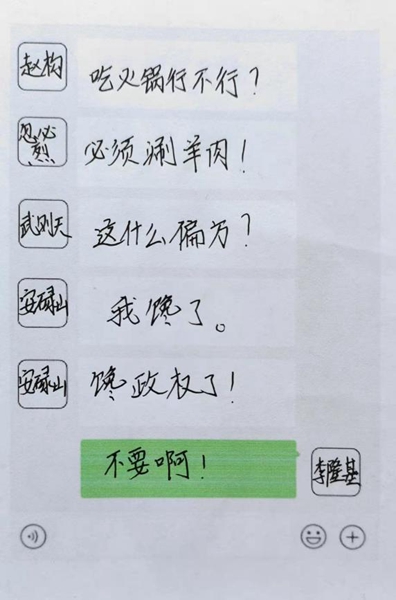 赵构
吃火锅行不行？
忽必
烈
必须涮羊肉！
武则天
这什么偏方？
安禄山
我馋了。
安禄山
馋政权了！
不要啊！
李隆基